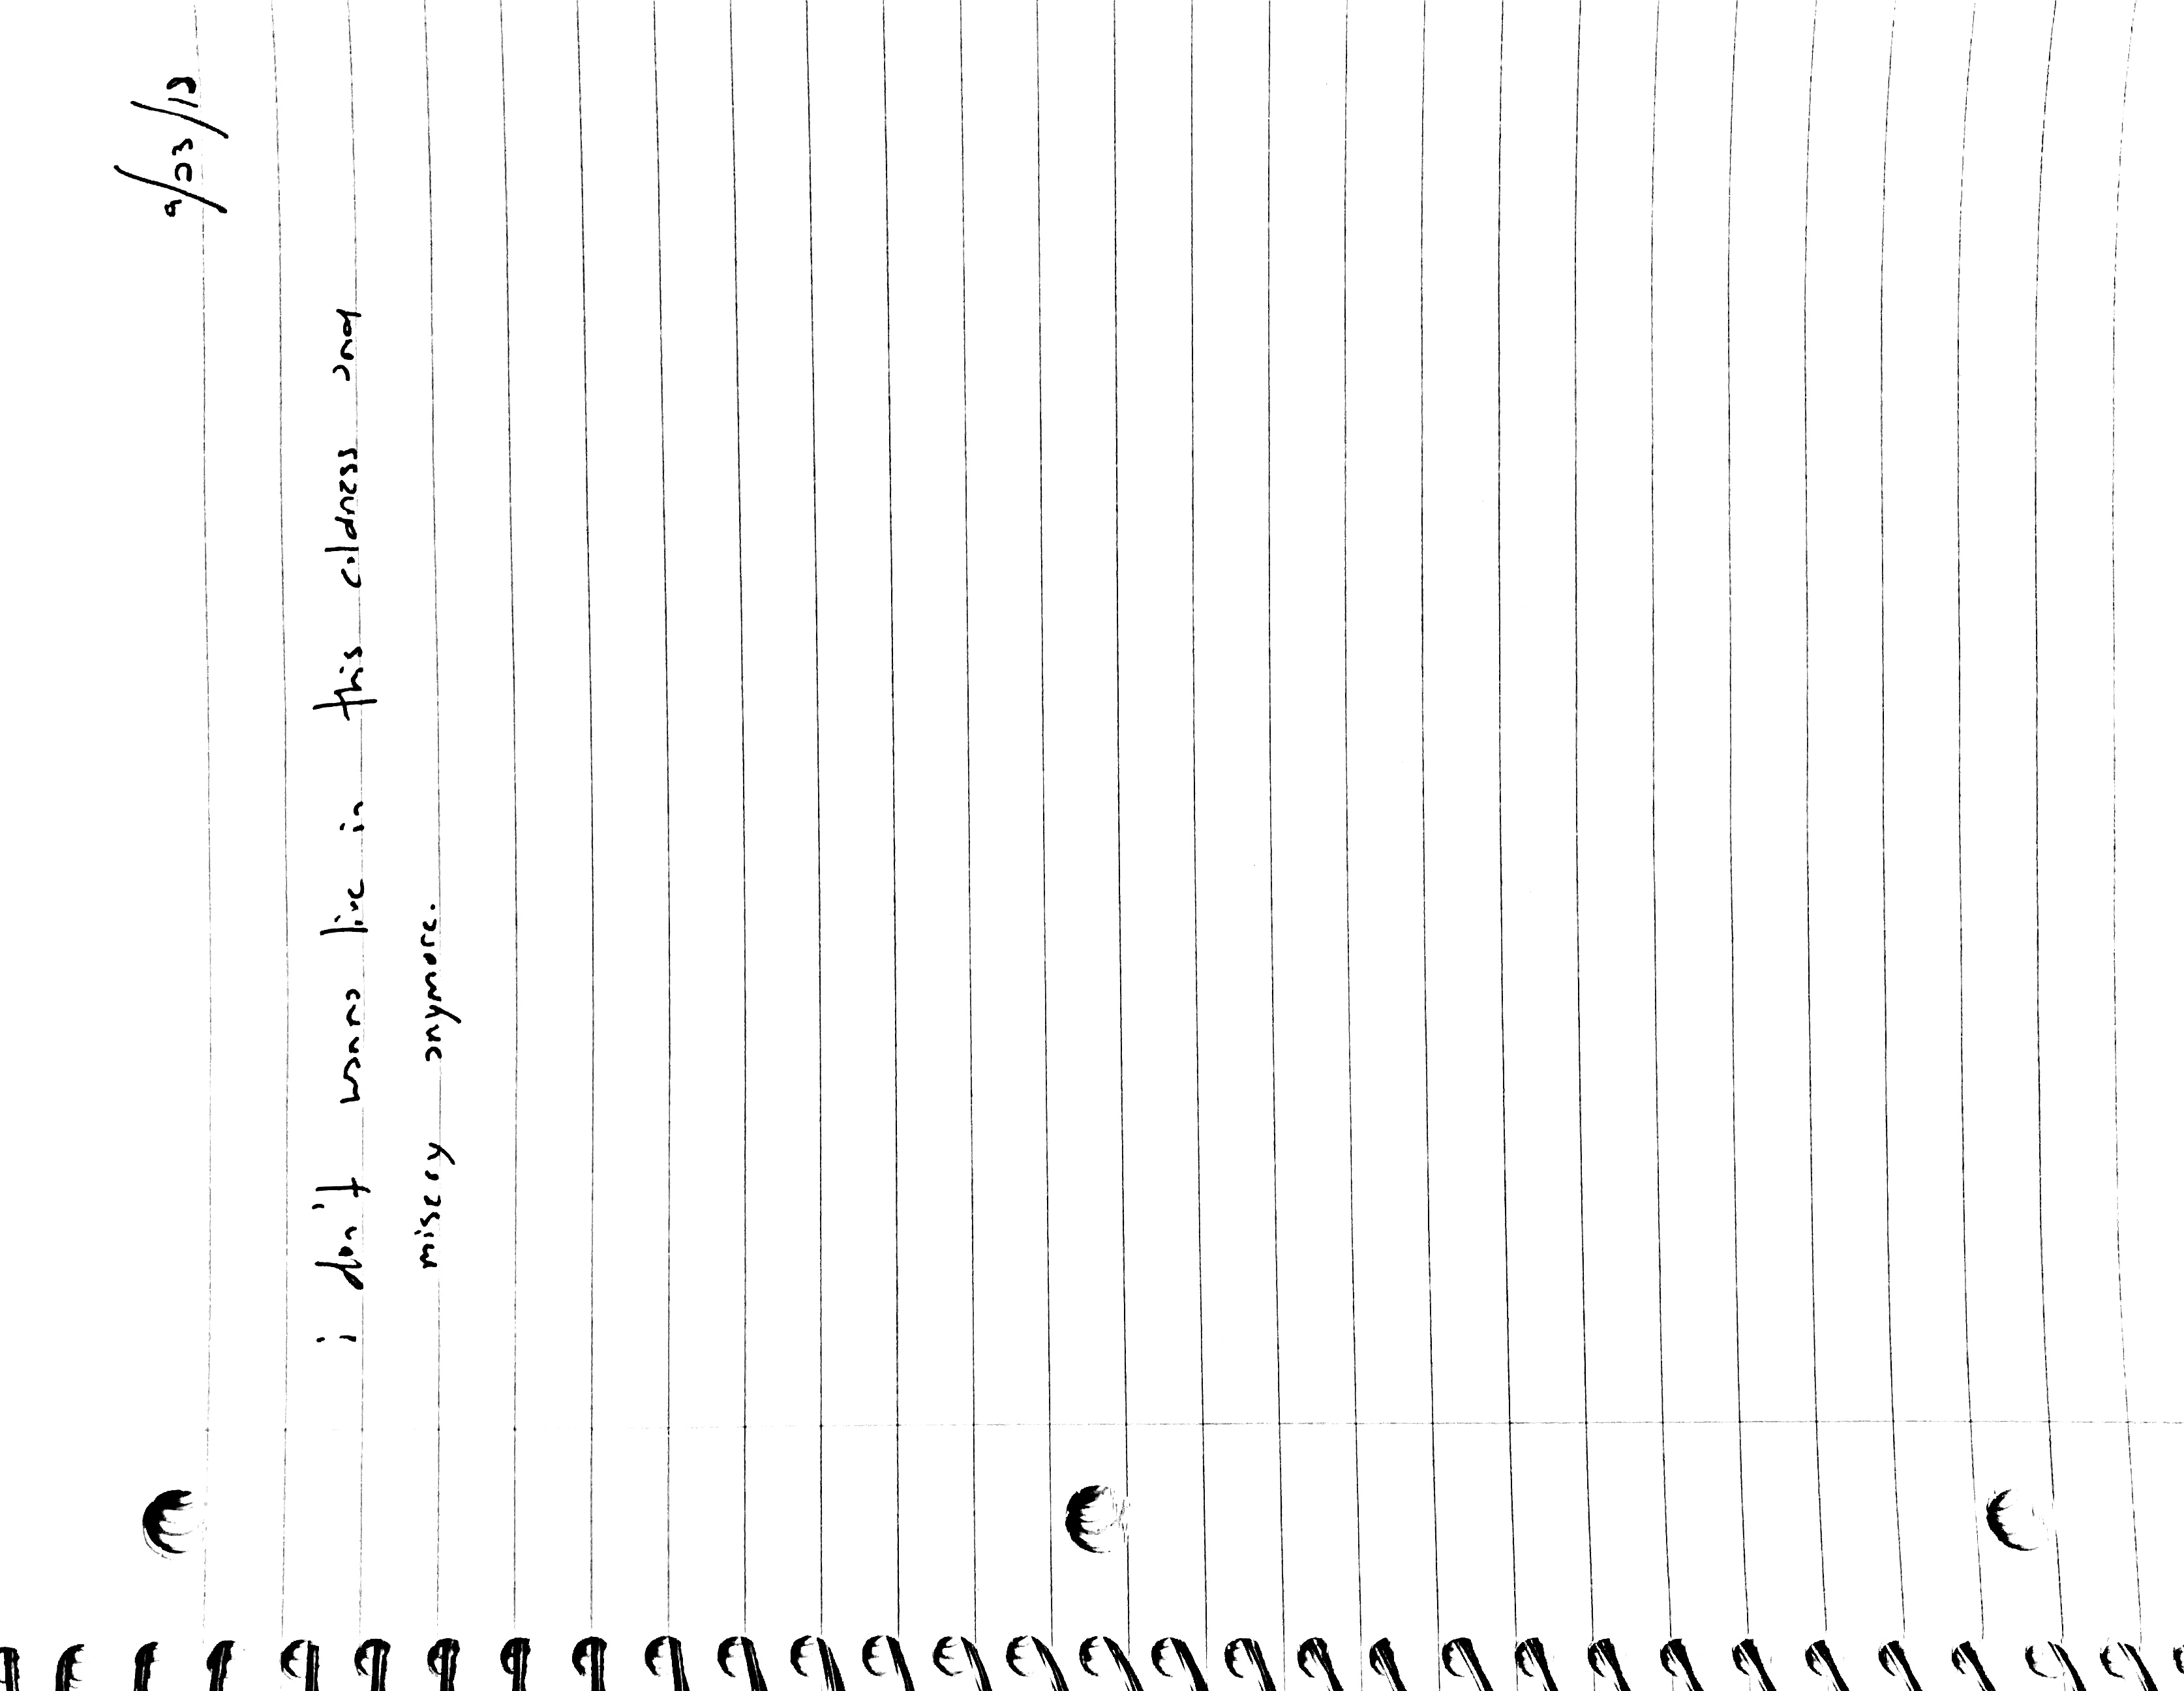 9/23/18
i don't wanna live in this coldness and
misery anymore.